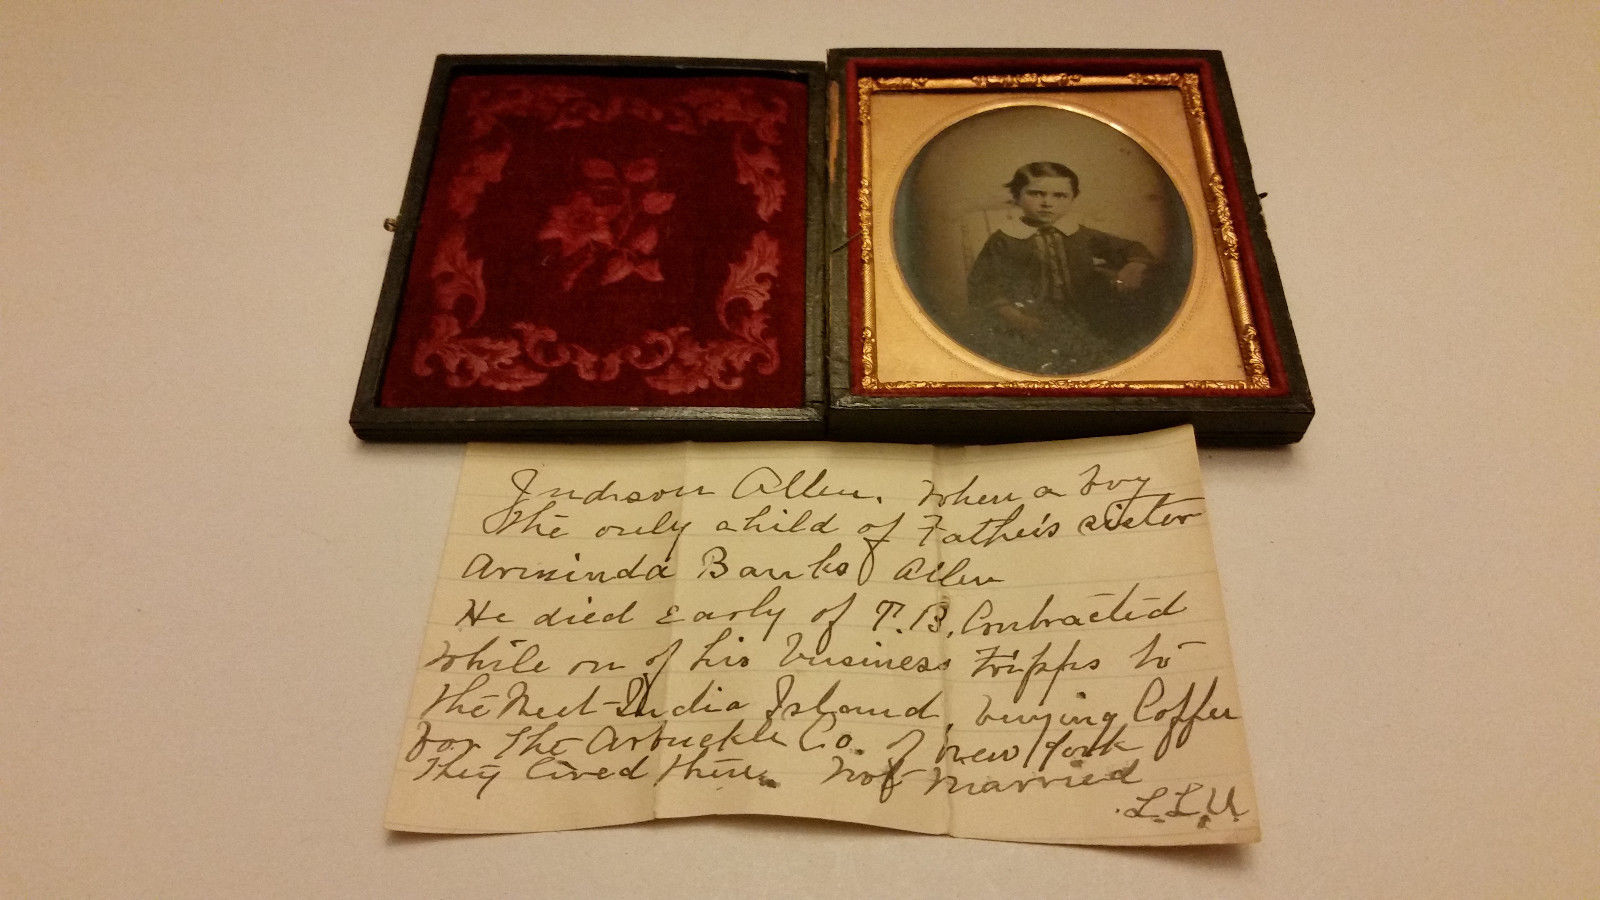 Judson Allen. When a boy
The only child of Father's sister
Arminda Banks Allen
He died early of T.B. Contracted
while on of his business tripps to
the West-India Island, buying Coffee
for the Arbuckle Co. of New York
They lived there. Not married
L.L.U.